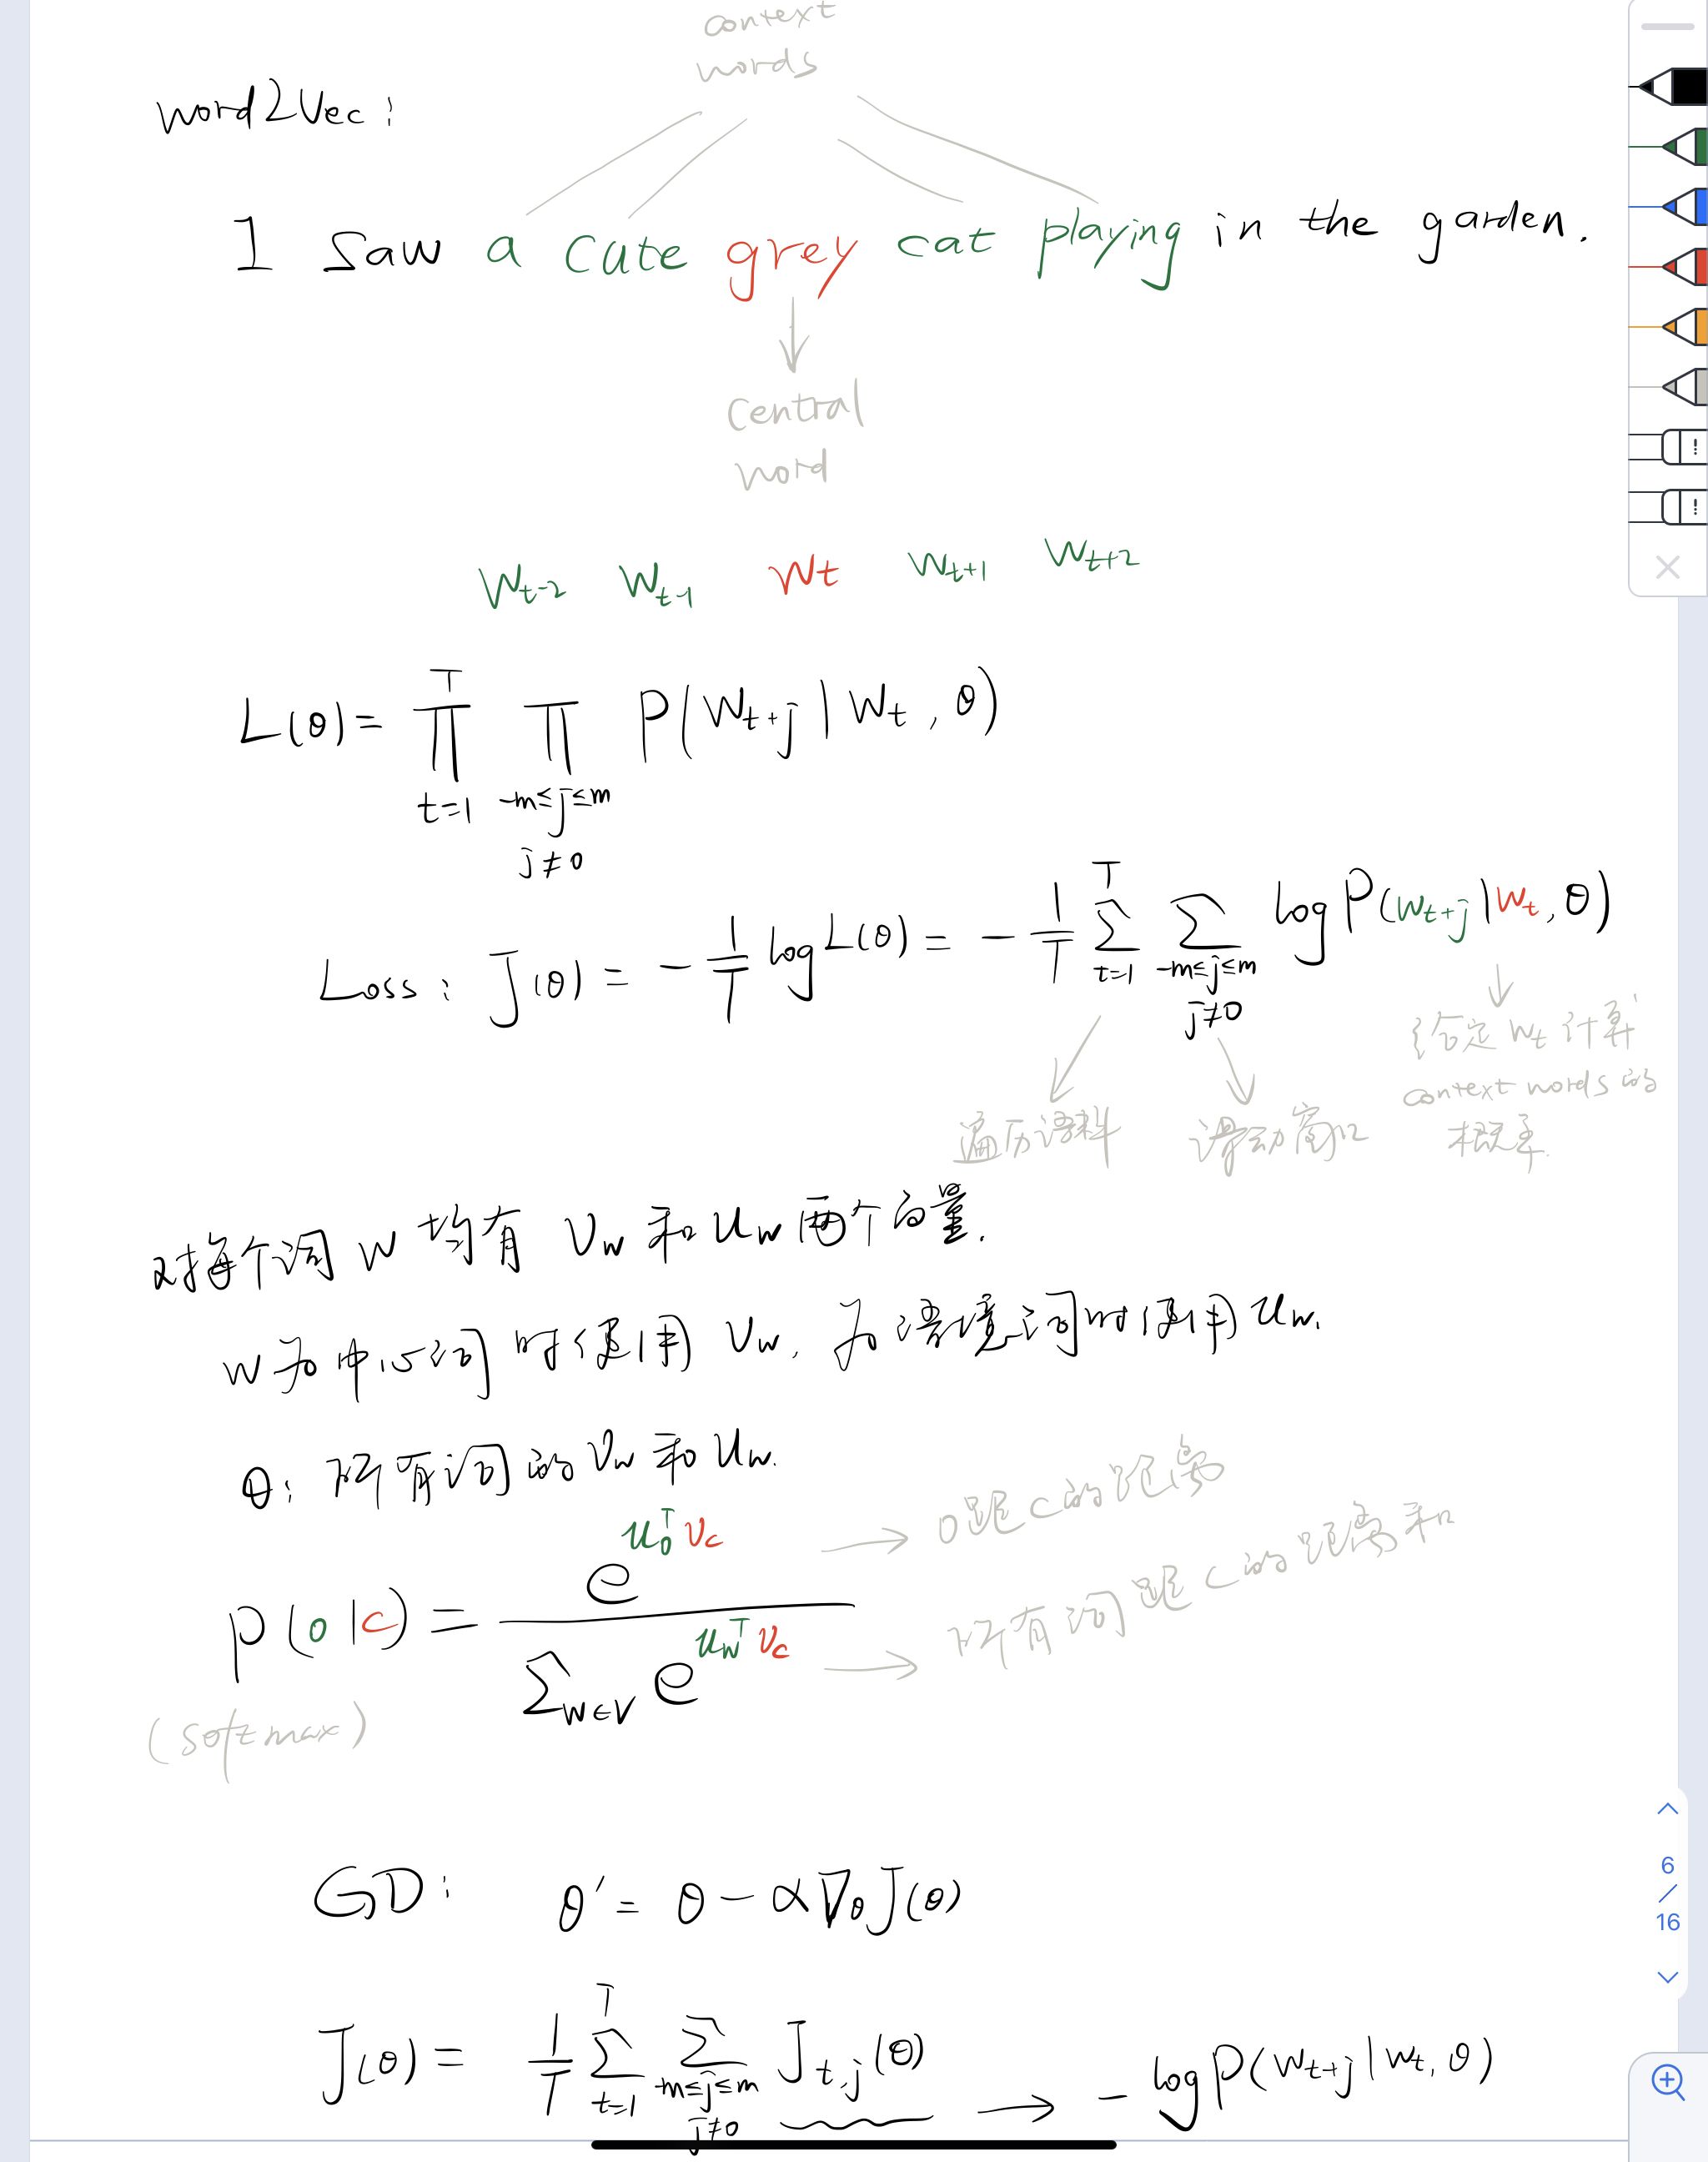 context
words
word2Vec:
I saw a cute grey cat playing in the garden.
central
word
W_{t-2} W_{t-1} W_t W_{t+1} W_{t+2}
L(θ) = ∏_{t=1}^{T} ∏_{-m≤j≤m, j≠0} P(W_{t+j} | W_t, θ)
Loss: J(θ) = -1/T log L(θ) = -1/T ∑_{t=1}^{T} ∑_{-m≤j≤m, j≠0} log P(W_{t+j} | W_t, θ)
给定 W_t 计算
context words 的
概率.
遍历语料 滑动窗口
对每个词 W 均有 V_w 和 U_w 两个向量.
W 为中心词时使用 V_w, 为语境词时使用 U_w.
θ: 所有词的 V_w 和 U_w.
P(o|c) = e^{u_o^T v_c} / ∑_{w∈V} e^{u_w^T v_c}
→ o距c的距离
→ 所有词距c的距离和
(softmax)
GD: θ' = θ - α∇_θ J(θ)
J(θ) = 1/T ∑_{t=1}^{T} ∑_{-m≤j≤m, j≠0} J_{t,j}(θ) → -log P(W_{t+j} | W_t, θ)
6
/
16